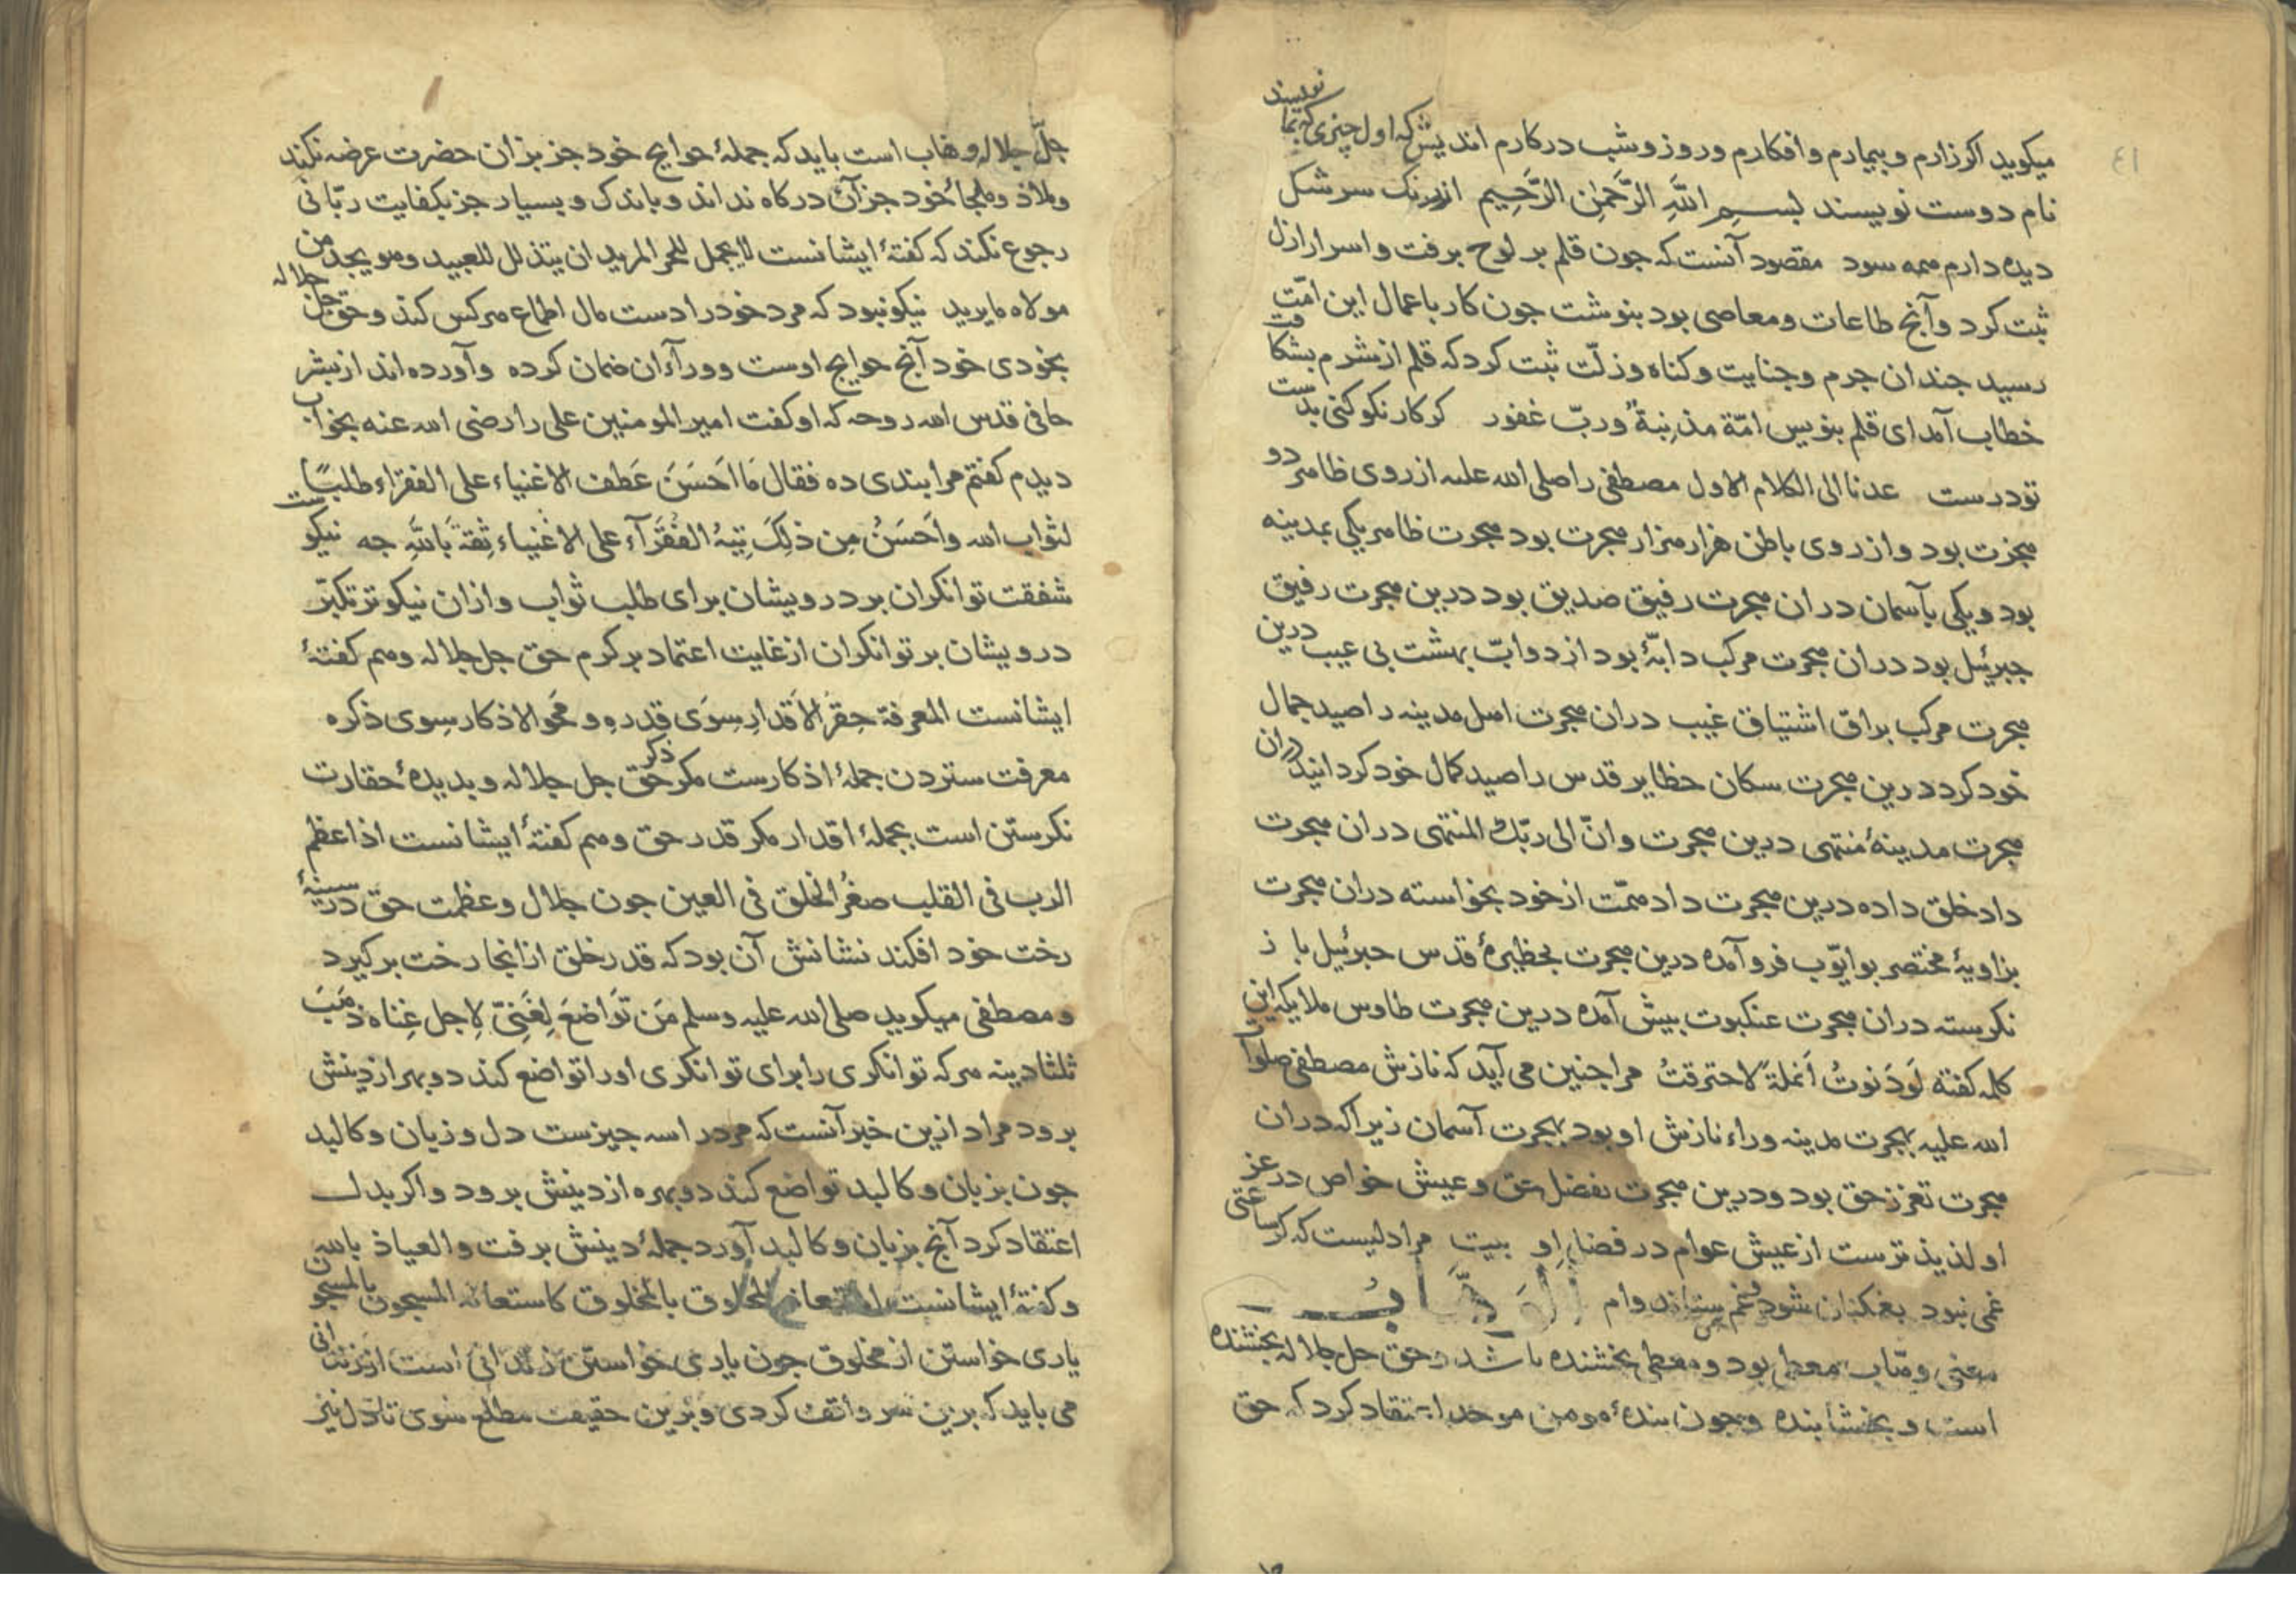 ٤١
میکوید اکر زارم و بیمارم و افکارم و روز و شب در کارم اندیش که اول چیزی که بما نویسند
نام دوست نویسند بسم اللّٰهِ الرَّحْمٰنِ الرَّحِیمِ از رنک سرشک
دیده دارم همه سود مقصود آنست که جون قلم بر لوح برفت و اسرار ازل
ثبت کرد و آنج طاعات و معاصی بود بنوشت جون کار باعمال این امّت
رسید جندان جرم و جنایت و کناه و زلّت ثبت کرد که قلم از شرم بشکافت
خطاب آمد ای قلم بنویس امّة مذنِبةٌ وربّ غفور کر کار نکو کنی بدست
تو درست عدنا الی الکلام الاول مصطفی را صلی الله علیه از روی ظاهر دو
هجرت بود و از روی باطن هزار هزار هجرت بود هجرت ظاهر یکی بمدینه
بود و یکی بآسمان دران هجرت رفیق صدیق بود درین هجرت رفیق
جبرئیل بود دران هجرت مرکب دابّهٔ بود از دوابّ بهشت بی عیب درین
هجرت مرکب براق اشتیاق غیب دران هجرت اهل مدینه را صید جمال
خود کرد درین هجرت سکان حظایر قدس را صید کمال خود کردانید دران
هجرت مدینهٔ منتهی درین هجرت وانّ الی ربّك المنتهی دران هجرت
داد خلق داده درین هجرت داد همّت از خود بخواسته دران هجرت
بزاویهٔ مختصر بو ایّوب فرو آمده درین هجرت بحظیرهٔ قدس جبرئیل باز
نکرسته دران هجرت عنکبوت بیش آمده درین هجرت طاوس ملایکه این
کلمه کفته لَو دَنوتُ اَنملةً لاحترقتُ مرا جنین می آید که نازش مصطفی صلوات
الله علیه بهجرت مدینه وراء نازش او بود بهجرت آسمان زیرا که دران
هجرت تعزز حق بود و درین هجرت بفضل حق و عیش خواص در عز
او لذیذ ترست از عیش عوام در فضل او بیت مرا دلیست که کر ساعتی
غمی نبود بغمکنان شود و غم ستاند وام الوَهَّابُ
معنی وهّاب معطی بود و معطی بخشنده باشد و حق جل جلاله بخشنده
است و بخشاینده و جون بندهٔ مومن موحد اعتقاد کرد که حق
جلّ جلاله وهاب است باید که جملهٔ حوایج خود جز بزان حضرت عرضه نکند
و ملاذ و ملجاء خود جز آن درکاه نداند و باندک و بسیار جز بکفایت ربّانی
رجوع نکند که کفتهٔ ایشانست لا یجمل للحر المرید ان یتذلل للعبید و هو یجد من
مولاه ما یرید نیکو نبود که مرد خود را دست مال اطماع هرکس کند و حق جل جلاله
بخودی خود آنج حوایج اوست و ورآء آن ضمان کرده و آورده اند از بشر
حافی قدس الله روحه که او کفت امیر المومنین علی را رضی الله عنه بخواب
دیدم کفتم مرا بندی ده فقال مَا اَحسَنَ عَطف الاغنیاء علی الفقراء طلبًا
لثواب الله واَحسَنُ مِن ذلِکَ تِیهُ الفُقَرآء علی الاغنیاء ثِقةً باللّهِ جه نیکوست
شفقت توانکران بر درویشان برای طلب ثواب و ازان نیکوتر تکبّر
درویشان بر توانکران از غایت اعتماد بر کرم حق جل جلاله و هم کفتهٔ
ایشانست المعرفة حِقَرُ الاَقدارِ سِوَی قدرهِ و مَحو الاذکار سِوی ذکره
معرفت ستردن جملهٔ اذکارست مکر ذکر حق جل جلاله و بدیدهٔ حقارت
نکرستن است بجملهٔ اقدار مکر قدر حق و هم کفتهٔ ایشانست اذا عظم
الرب فی القلب صغُرَ الخلق فی العین جون جلال و عظمت حق در سینهٔ
رخت خود افکند نشانش آن بود که قدر خلق از انجا رخت برکیرد
و مصطفی میکوید صلی الله علیه وسلم مَن تَواضَعَ لِغَنِیّ لِاجل غِناه ذهَبَ
ثلثا دینه هرکه توانکری را برای توانکری او را تواضع کند دو بهر از دینش
برود مراد ازین خبر آنست که مرد را سه جیزست دل و زبان و کالبد
جون بزبان و کالبد تواضع کند دو بهره از دینش برود و اکر بدل
اعتقاد کرد آنج بزبان و کالبد آورد جملهٔ دینش برفت و العیاذ بالله
و کفتهٔ ایشانست استعانة المخلوق بالمخلوق کاستعانه المسجون بالمسجون
یاری خواستن از مخلوق جون یاری خواستن زندانی است از زندانی
می باید که برین سر واقف کردی و برین حقیقت مطلع شوی تا دل نیز